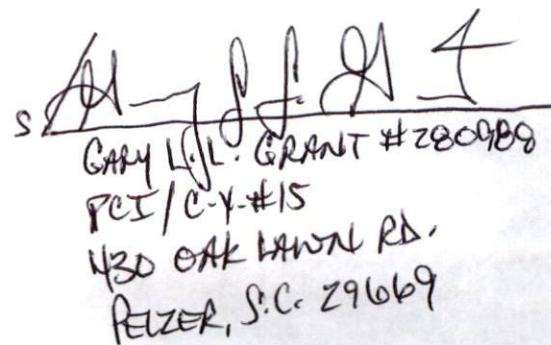 S
GARY L.L. GRANT #280988
PCI/C-Y-#15
430 OAK LAWN RD.
PELZER, S.C. 29669